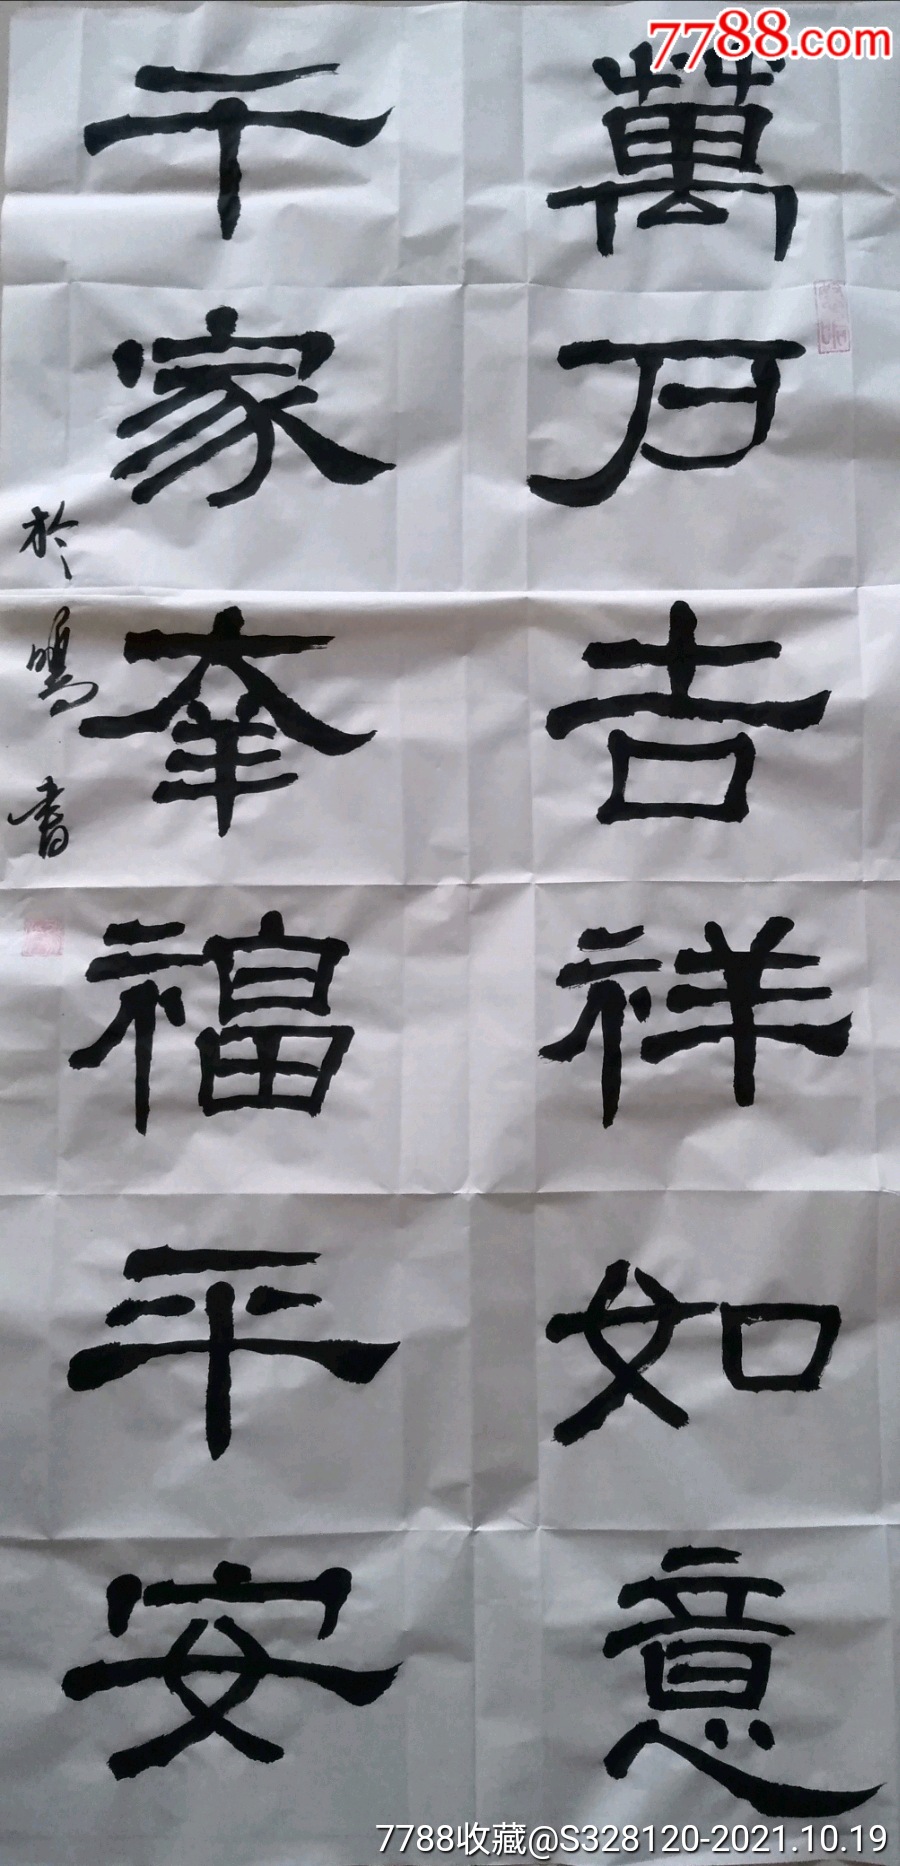 7788.com
萬戶吉祥如意
千家幸福平安
於鳴書
7788收藏@S328120-2021.10.19